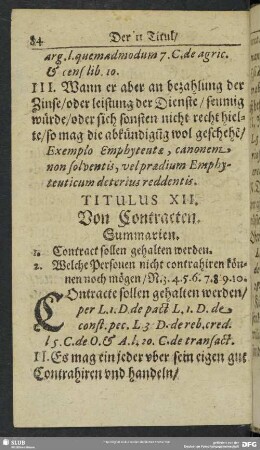 84 Der 11 Titul/
arg. l. quemadmodum 7. C. de agric.
& cens lib. 10.
III. Wann er aber an bezahlung der
Zinse/oder leistung der Dienste/ seumig
würde/oder sich sonsten nicht recht hiel-
te/so mag die abkündigūg wol geschehē/
Exemplo Emphyteutæ, canonem
non solventis, vel prædium Emphy-
teuticum deterius reddentis.
TITULUS XII.
Von Contracten.
Summarien.
1. Contract sollen gehalten werden.
2. Welche Personen nicht contrahiren kön-
nen noch mögen/ N. 3. 4. 5. 6. 7. 8. 9. 10.
COntracte sollen gehalten werden/
per L. 1. D. de pact L. 1. D. de
const. pec. L. 3 D. de reb. cred.
l 5. C. de O. & A. l. 20. C. de transact.
II. Es mag ein jeder vber sein eigen gut
Contrahiren vnd handeln/
SLUB
DFG